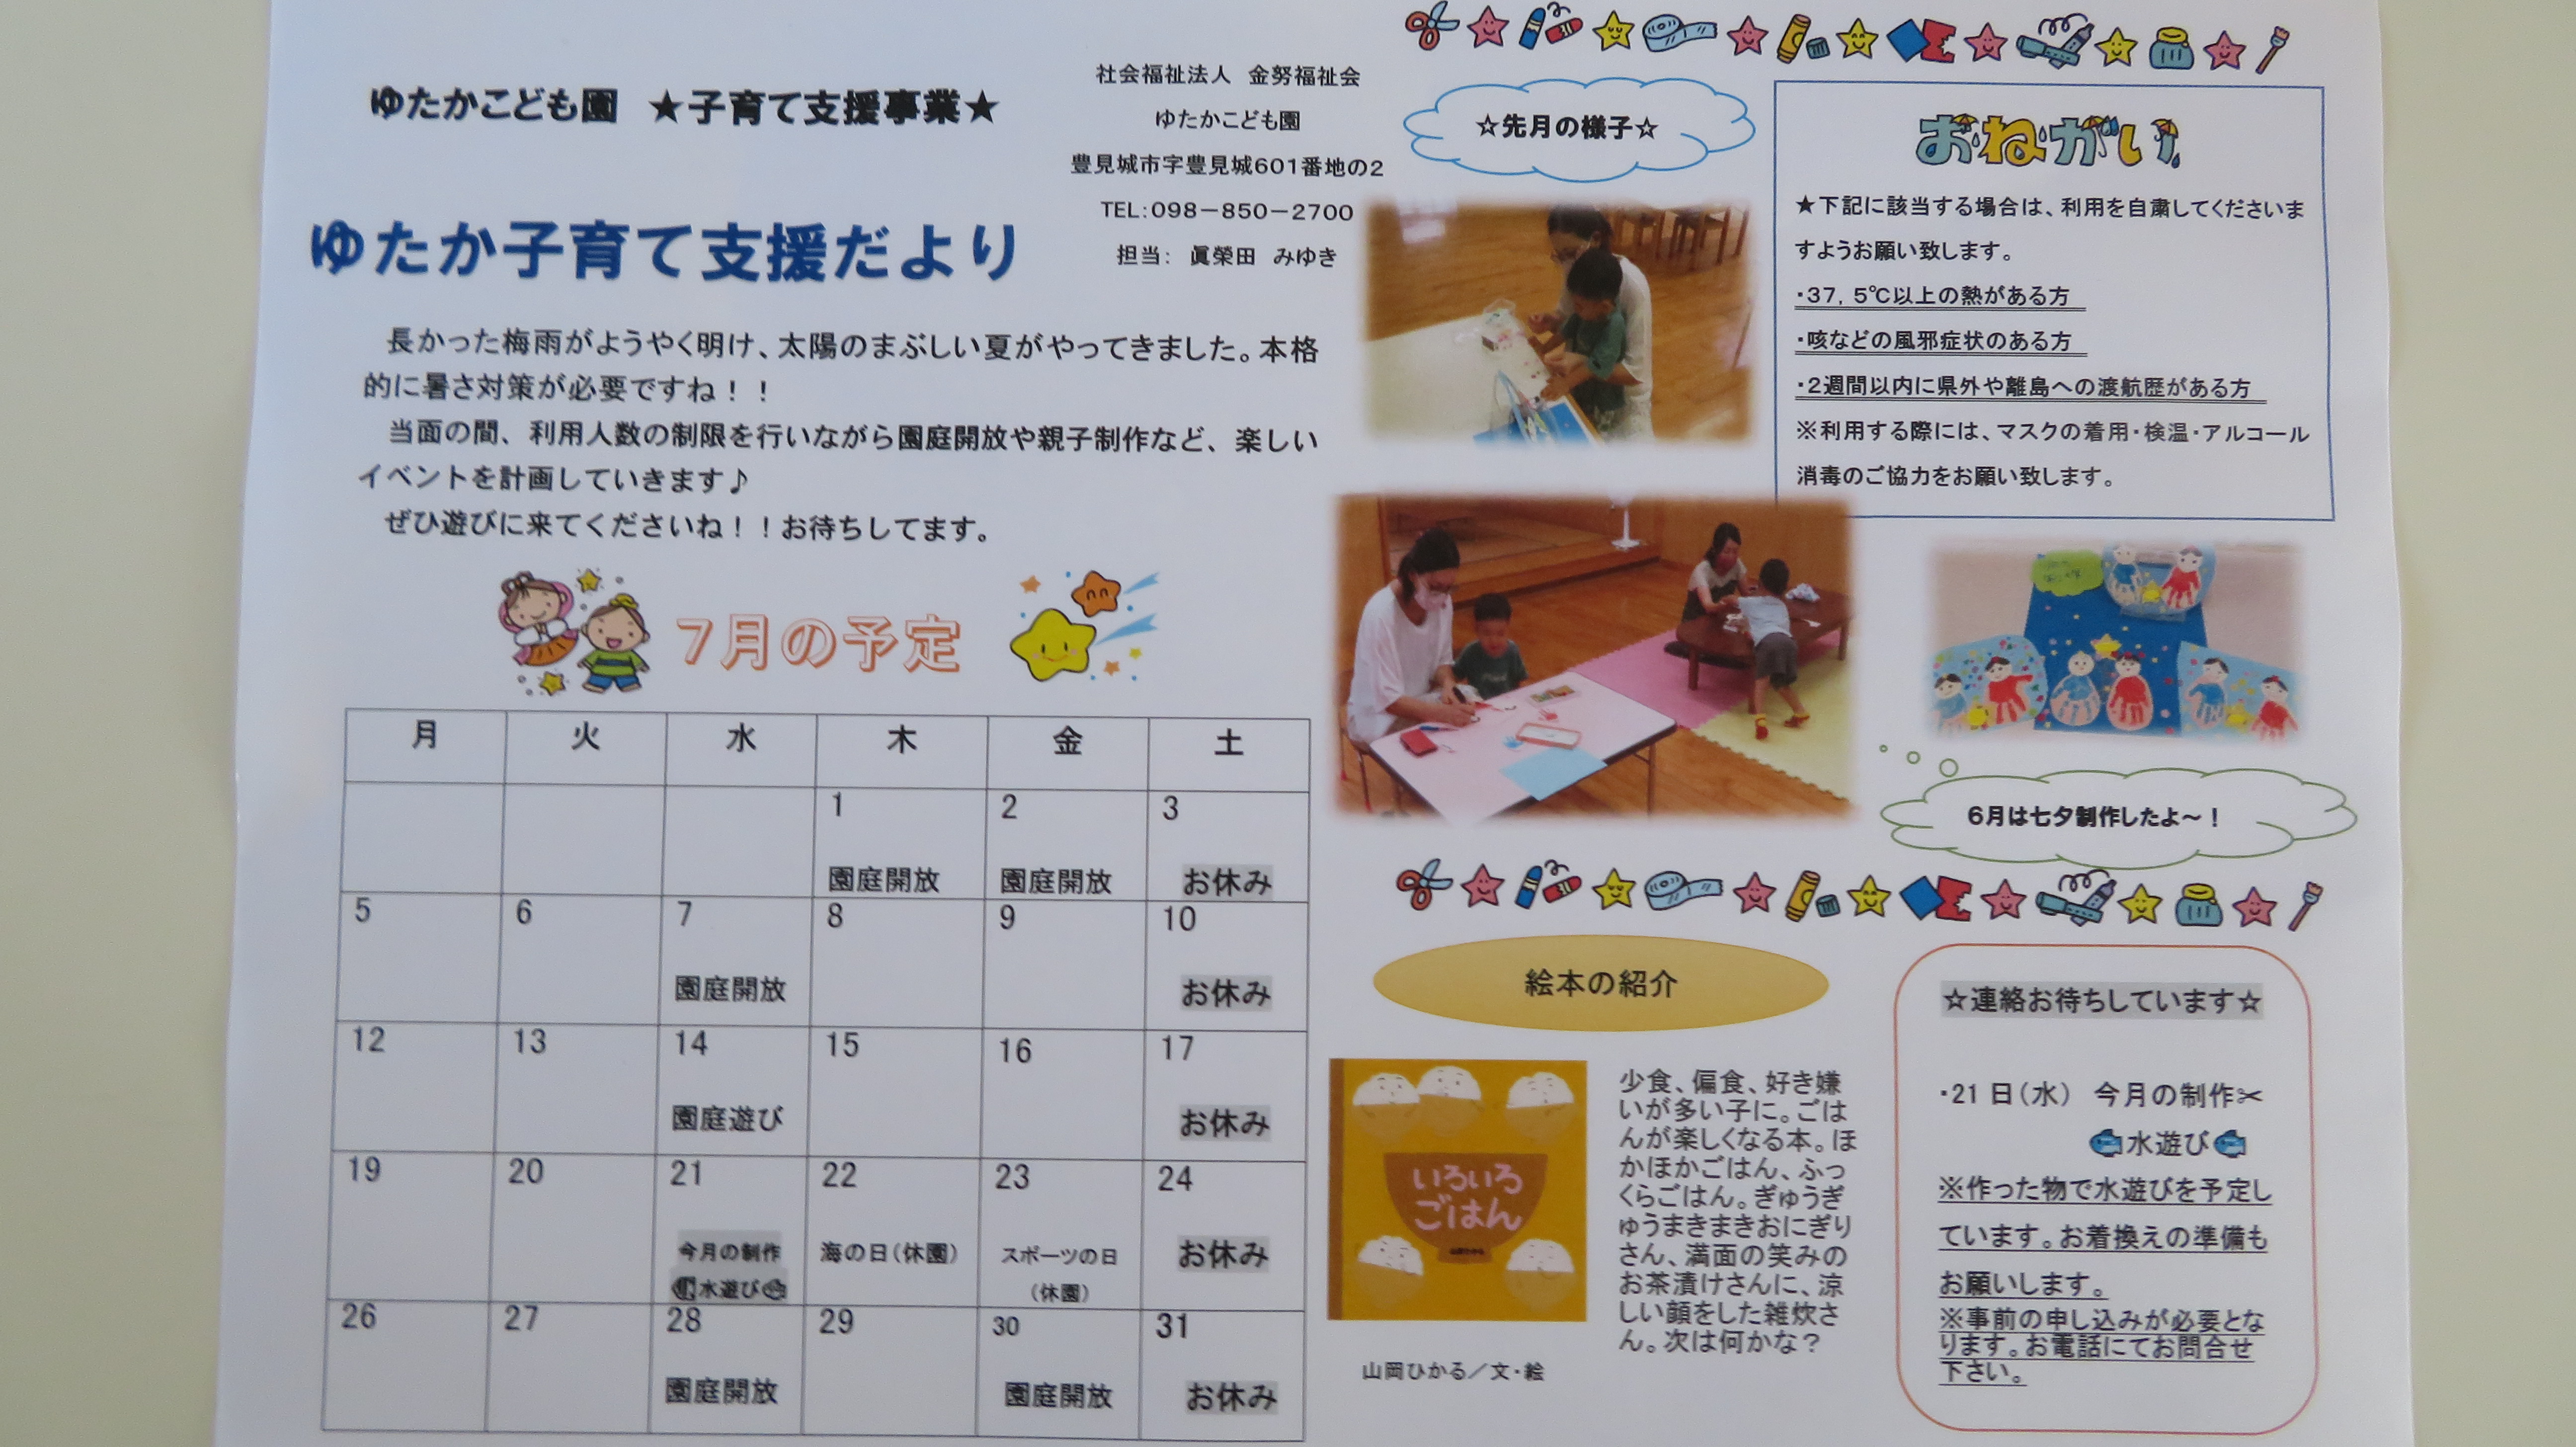 ゆたかこども園　★子育て支援事業★
社会福祉法人　金努福祉会
ゆたかこども園
豊見城市字豊見城601番地の2
TEL:098－850－2700
担当:　眞榮田　みゆき
ゆたか子育て支援だより
長かった梅雨がようやく明け、太陽のまぶしい夏がやってきました。本格
的に暑さ対策が必要ですね！！
当面の間、利用人数の制限を行いながら園庭開放や親子制作など、楽しい
イベントを計画していきます♪
ぜひ遊びに来てくださいね！！お待ちしてます。
7月の予定
月 火 水 木 金 土
1 2 3
園庭開放 園庭開放 お休み
5 6 7 8 9 10
園庭開放 お休み
12 13 14 15 16 17
園庭遊び お休み
19 20 21 22 23 24
今月の制作 海の日(休園) スポーツの日 お休み
水遊び (休園)
26 27 28 29 30 31
園庭開放 園庭開放 お休み
☆先月の様子☆
おねがい
★下記に該当する場合は、利用を自粛してくださいま
すようお願い致します。
・37，5℃以上の熱がある方
・咳などの風邪症状のある方
・2週間以内に県外や離島への渡航歴がある方
※利用する際には、マスクの着用・検温・アルコール
消毒のご協力をお願い致します。
6月は七夕制作したよ～！
絵本の紹介
いろいろ
ごはん
山岡ひかる／文・絵
少食、偏食、好き嫌
いが多い子に。ごは
んが楽しくなる本。ほ
かほかごはん、ふっ
くらごはん。ぎゅうぎ
ゅうまきまきおにぎり
さん、満面の笑みの
お茶漬けさんに、涼
しい顔をした雑炊さ
ん。次は何かな？
☆連絡お待ちしています☆
・21日(水)　今月の制作✂
水遊び
※作った物で水遊びを予定し
ています。お着換えの準備も
お願いします。
※事前の申し込みが必要とな
ります。お電話にてお問合せ
下さい。